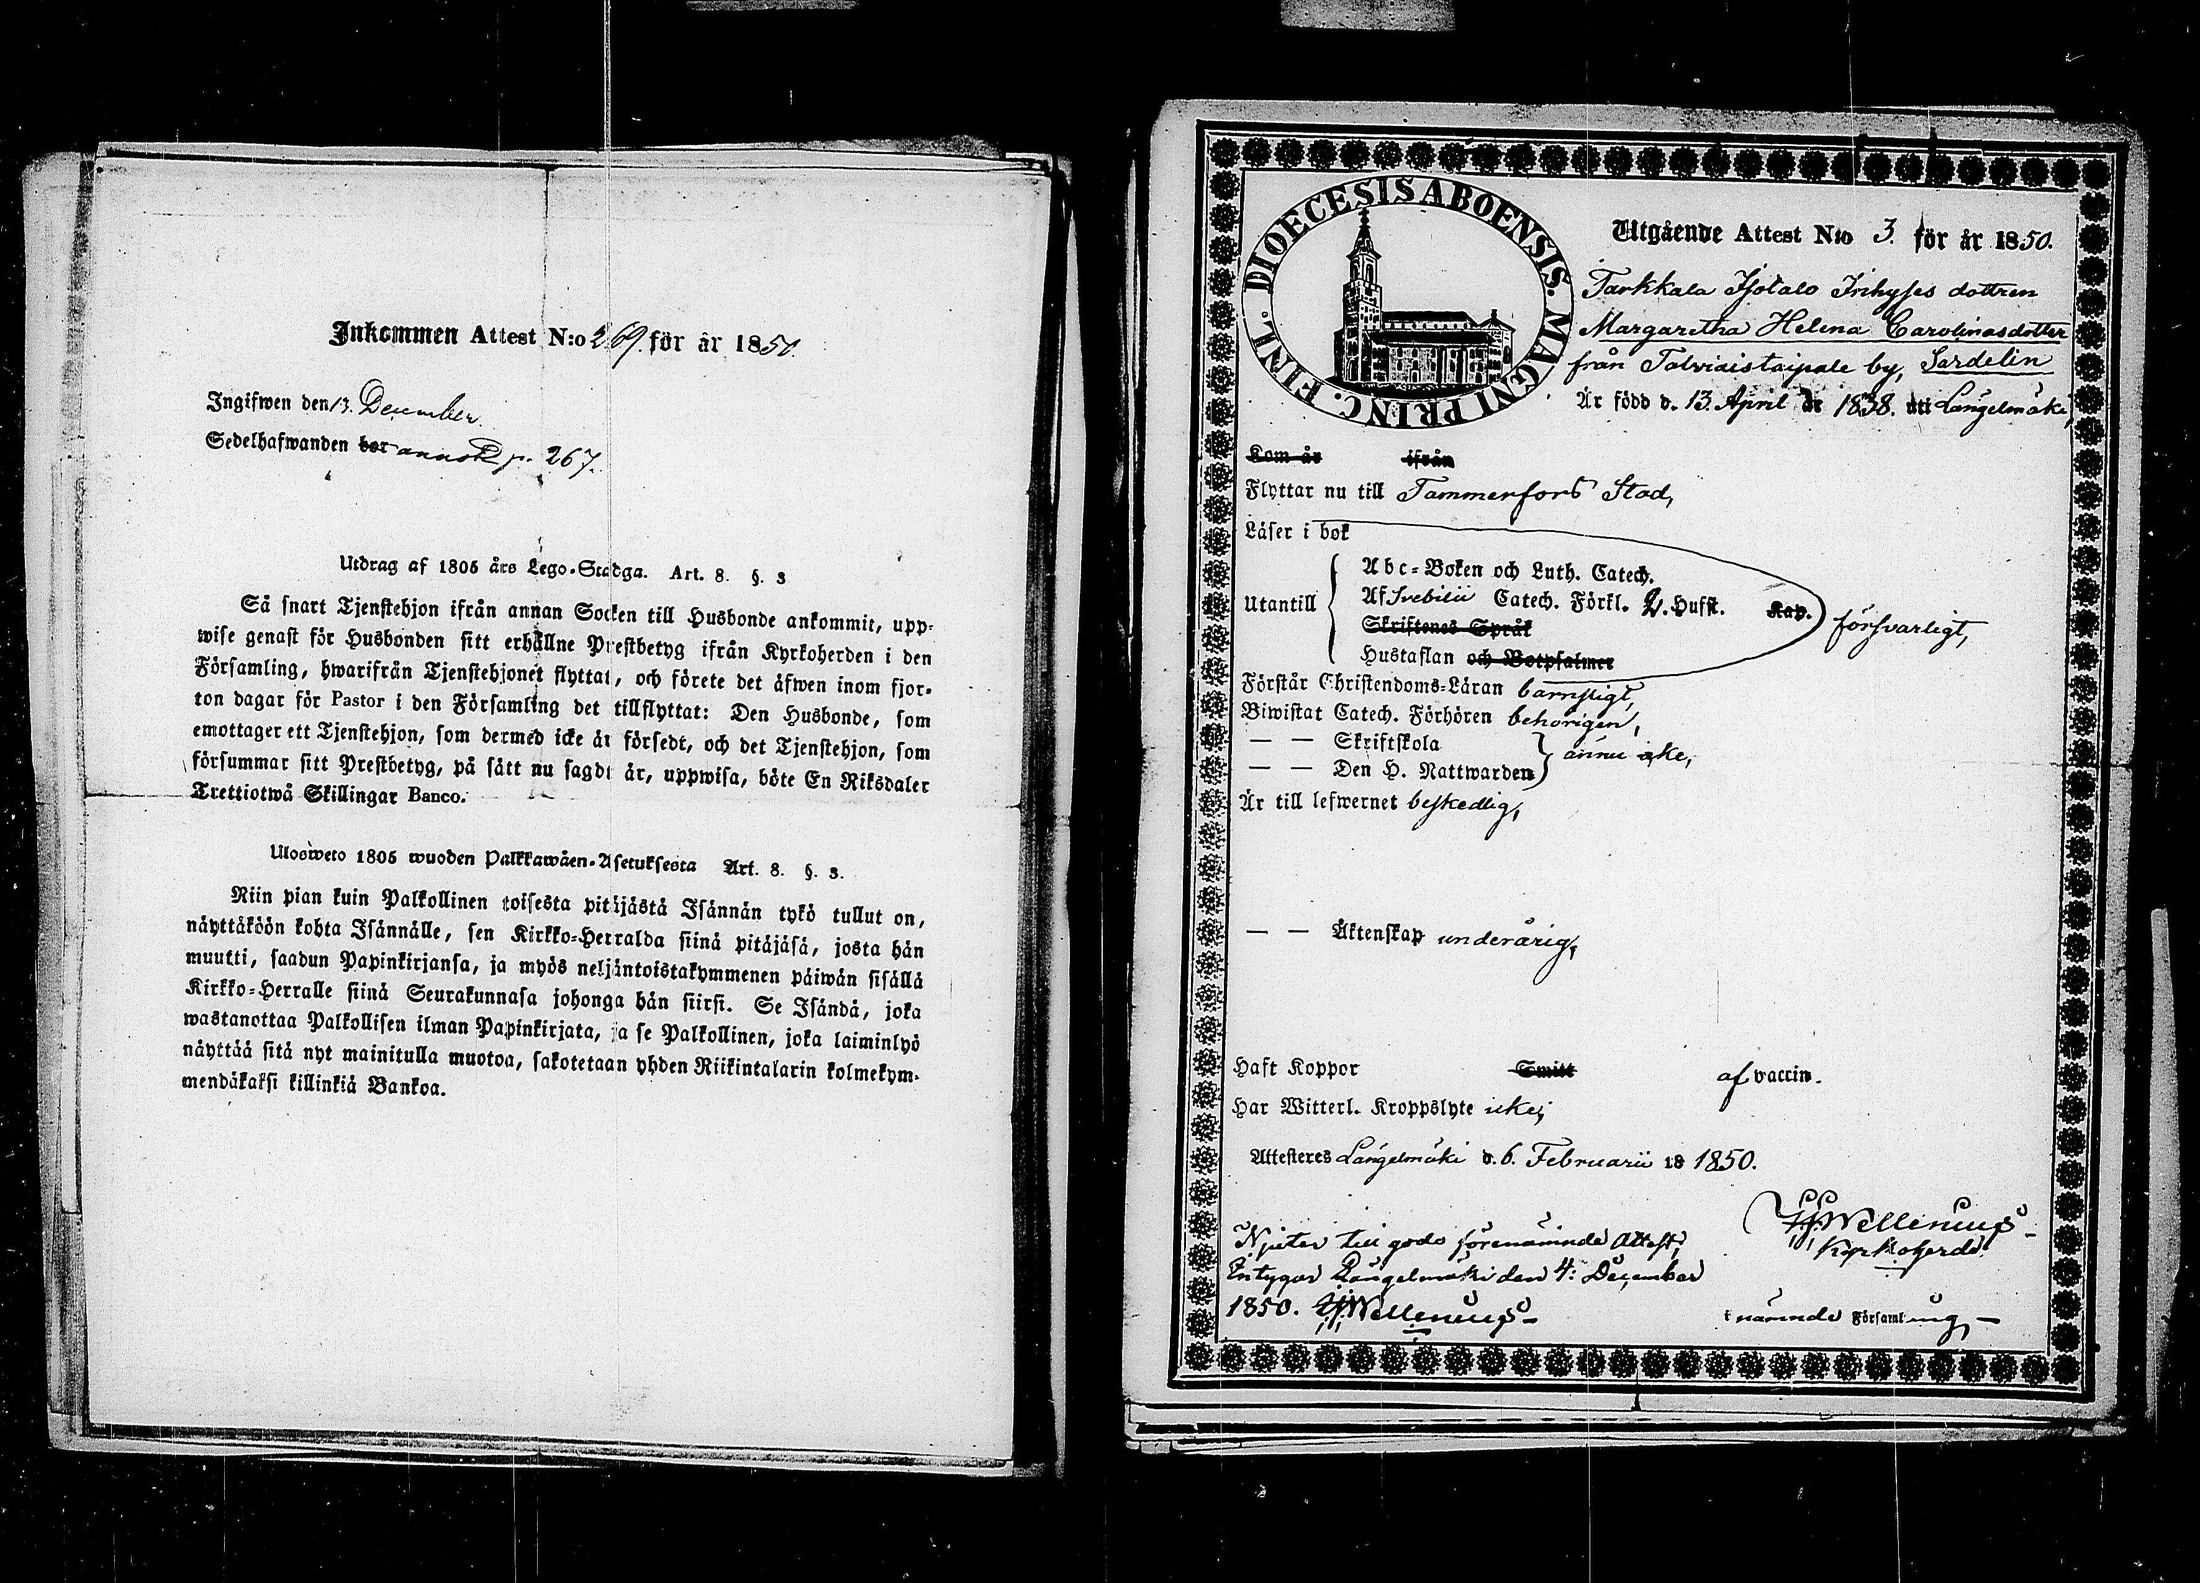 Inkommen Attest N:o 269. för år 1850.
Ingifwen den 13. December.
Sedelhafwanden bor annot. p. 267.
Utdrag af 1805 års Lego-Stadga. Art. 8. §. 3
Så snart Tjenstehjon ifrån annan Socken till Husbonde ankommit, upp-
wise genast för Husbonden sitt erhållne Prestbetyg ifrån Kyrkoherden i den
Församling, hwarifrån Tjenstehjonet flyttat, och förete det äfwen inom fjor-
ton dagar för Pastor i den Församling det tillflyttat: Den Husbonde, som
emottager ett Tjenstehjon, som dermed icke är försedt, och det Tjenstehjon, som
försummar sitt Prestbetyg, på sätt nu sagdt är, uppwisa, böte En Riksdaler
Trettiotwå Skillingar Banco.
Ulosweto 1805 wuoden Palkkawäen-Asetuksesta Art. 8. §. 3.
Niin pian kuin Palkollinen toisesta pitäjästä Isännän tykö tullut on,
näyttäköön kohta Isännälle, sen Kirkko-Herralda siinä pitäjäsä, josta hän
muutti, saadun Papinkirjansa, ja myös neljäntoistakymmenen päiwän sisällä
Kirkko-Herralle siinä Seurakunnasa johonga hän siirsi. Se Isändä, joka
wastanottaa Palkollisen ilman Papinkirjata, ja se Palkollinen, joka laiminlyö
näyttää sitä nyt mainitulla muotoa, sakotetaan yhden Riikintalarin kolmekym-
mendäkaksi killinkiä Bankoa.
DIOECESIS ABOENSIS. MAGNI PRINC. FINL.
Utgående Attest N:o 3. för år 1850.
Tarkkala Inhyses dottren
Margaretha Helena Carolinasdotter
från Talviaistaipale by, Sardelin
Är född d. 13. April år 1838. uti Längelmäki,
Kom år ifrån
Flyttar nu till Tammerfors Stad,
Läser i bok
Utantill
Abc-Boken och Luth. Catech.
Af Svebilii Catech. Förkl. 2. Hufst. Kap.
Skriftenes Språk
Hustaflan och Botpsalmer
försvarligt,
Förstår Christendoms-Läran barnsligt,
Biwistat Catech. Förhören behörigen,
— — Skriftskola
— — Den H. Nattwarden
ännu icke,
Är till lefwernet beskedlig,
— — Äktenskap underårig,
Haft Koppor Smitt af vaccin.
Har Witterl. Kroppslyte icke;
Attesteres Längelmäki d. 6. Februarii 18 1850.
Wellenius
Kyrkoherde
i nämnde Församling,
Njuter till godo förenämnde Attest;
Intygar Längelmäki den 4: December
1850. Wellenius